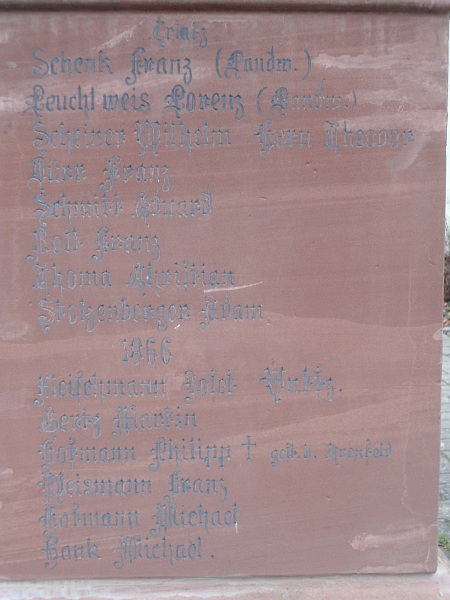 Schenk Franz (Landw.)
Leuchtweis Lorenz (Landw.)
Scheiner Wilhelm
Dürr Franz
Schmitt Eduard
Franz
Thoma Christian
Stolzenberger Adam
1866
Fleischmann
Martin
Hofmann Philipp †
Weismann Franz
Hofmann Michael
Hank Michael.